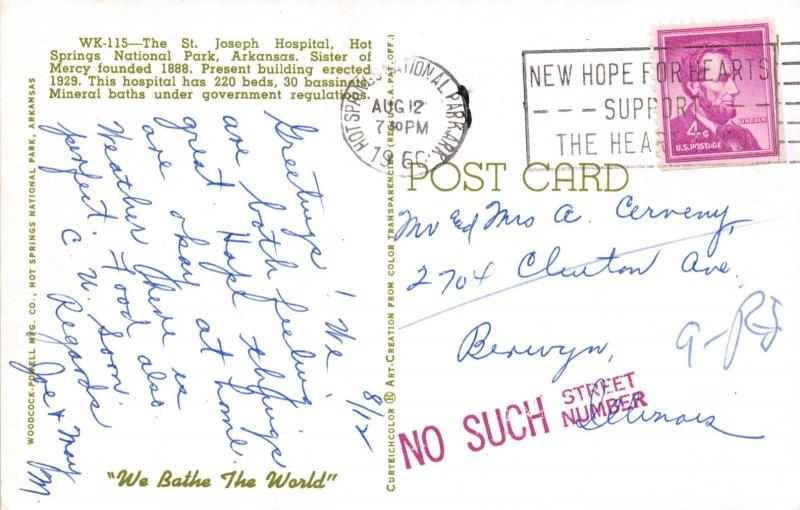 WK-115—The St. Joseph Hospital, Hot
Springs National Park, Arkansas. Sister of
Mercy founded 1888. Present building erected
1929. This hospital has 220 beds, 30 bassinets
Mineral baths under government regulations
Greetings! We
are both feeling
great. Hope things
are okay at home.
Weather here is
perfect. Food also.
C. U. Soon.
Regards
Joe & May
M.
8/12
"We Bathe The World"
WOODCOCK-POWELL MFG. CO., HOT SPRINGS NATIONAL PARK, ARKANSAS
CURTEICHCOLOR ® ART-CREATION FROM COLOR TRANSPARENCY (REG. U.S.A. PAT. OFF.)
HOT SPRINGS NATIONAL PARK, ARK.
AUG 12
7 30 PM
1966
NEW HOPE FOR HEARTS
SUPPOR
THE HEAR
LINCOLN
4¢
U.S. POSTAGE
POST CARD
Mr and Mrs A. Cerveny,
2704 Clinton Ave.
Berwyn,
Illinois
NO SUCH STREET
NUMBER